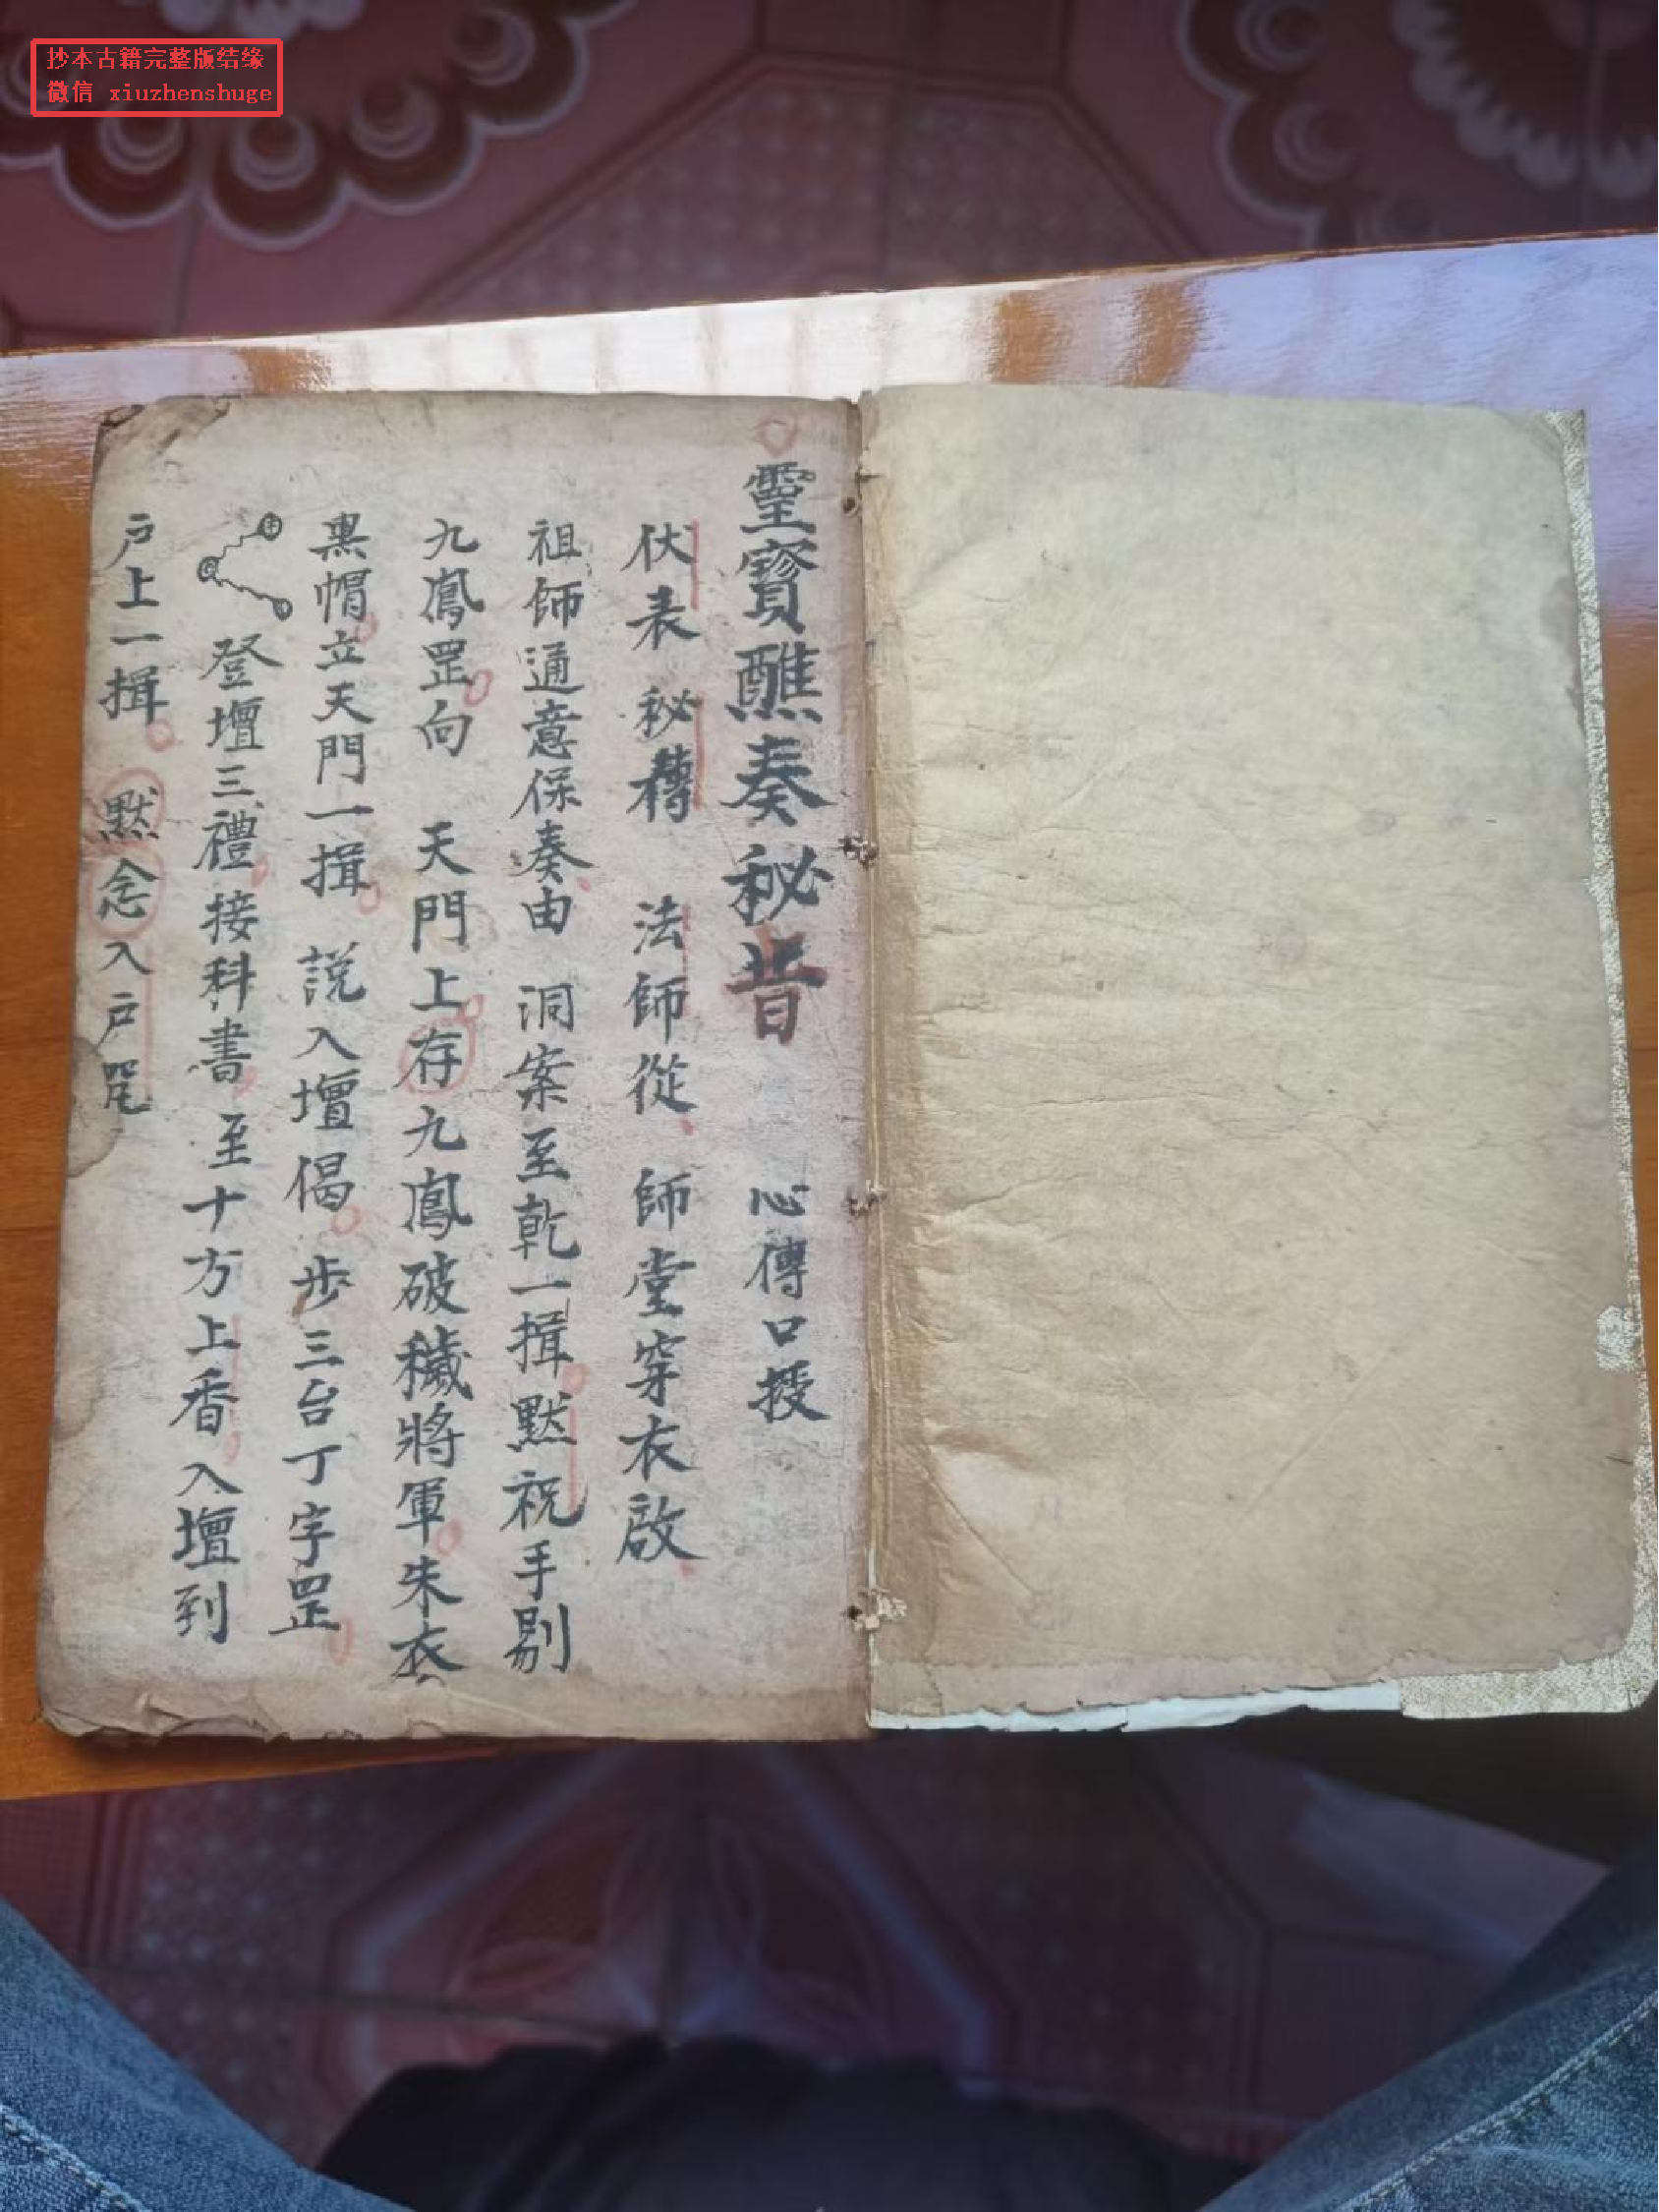 抄本古籍完整版结缘
微信 xiuzhenshuge
靈寳醮奏秘旨 心傳口授
伏表秘傳 法師從 師堂穿衣啟
祖師通意保奏由 洞案至乾一揖默祝手剔
九鳳罡向 天門上存九鳳破穢將軍朱衣
黒帽立天門一揖 説入壇偈 步三台丁字罡
登壇三禮接科書至十方上香入壇到
户上一揖 黙念入户咒